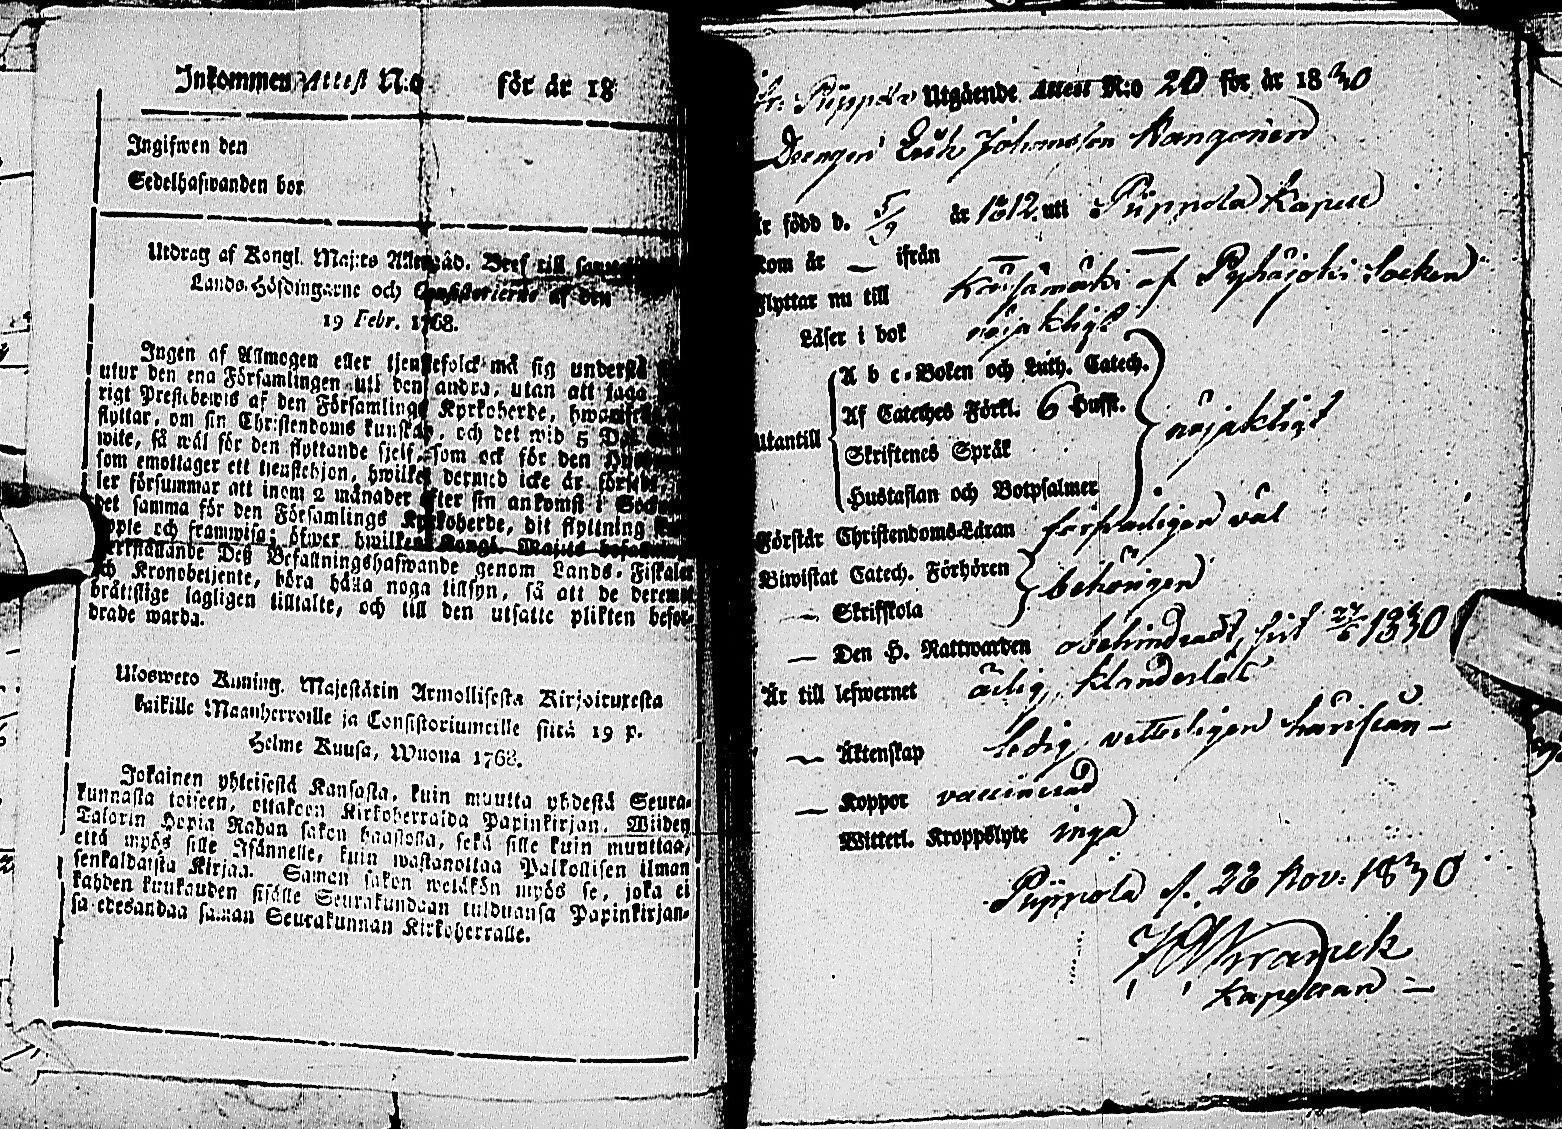 Inkommen Attest N:o för år 18
Ingifwen den
Sedelhafwanden bor
Utdrag af Kongl. Maj:ts Allernåd. Bref till samtelige
Lands-Höfdingarne och Consistorierne af den
19 Febr. 1768.
Ingen af Allmogen eller tjenstefolck må sig understå
utur den ena Församlingen uti den andra, utan att taga
rigt Prestbewis af den Församlings Kyrkoherde, hwarifrån
flyttar, om sin Christendoms kunskap, och det wid 5 Dal.
wite, så wäl för den flyttande sjelf, som ock för den
som emottager ett tjenstehjon, hwilket dermed icke är försedt
ler försummar att inom 2 månader efter sin ankomst i Socknen
det samma för den Församlings Kyrkoherde, dit flyttning
oppte och framwisa; öfwer hwilken Kongl. Maj:ts befallning
werkställande Deß Befallningshafwande genom Lands-Fiskaler
och Kronobetjente, böra hålla noga tillsyn, så att de deremot
bråttslige lagligen tilltalte, och till den utsatte plikten befor-
drade warda.
Ulosweto Kuning. Majestätin Armollisesta Kirjoituxesta
kaikille Maanherroille ja Consistoriumeille siitä 19 p.
Helme Kuusa, Wuona 1768.
Jokainen yhteisestä Kansasta, kuin muutta yhdestä Seura-
kunnasta toiseen, ottakoon Kirkoherralda Papinkirjan. Wiiden
Talarin Hopia Rahan sakon haastolla, sekä sille kuin muuttaa,
että myös sille Isännelle, kuin wastanottaa Palkollisen ilman
senkaldaista Kirjaa. Saman sakon wetäkön myös se, joka ei
kahden kuukauden sisälle Seurakundaan tulduansa Papinkirjan-
sa edesandaa saman Seurakunnan Kirkoherralle.
fr: Piippola Utgående Attest N:o 20 för år 1830
Drengen Erik Johansson Kangonen
Är född d. 5/9 år 1812. uti Piippola Kapell
Kom år — ifrån —
Flyttar nu till Kärsämäki af Pyhäjoki Socken
Läser i bok nöjaktigt
A b c-Boken och Luth. Catech.
Af Cateches Förkl. 6 Hufst.
Utantill nöjaktigt
Skriftenes Språk
Hustaflan och Botpsalmer
Förstår Christendoms-Läran försvarligen väl
Biwistat Catech. Förhören behörigen
— Skriftskola
— Den H. Nattwarden obehindradt, sist 27/6 1830
Är till lefwernet ärlig, klanderlös
— Äktenskap ledig vitterligen härifrån —
— Koppor vaccinerad
Witterl. Kroppslyte inga
Piippola d. 28 Nov: 1830
Kapellan —